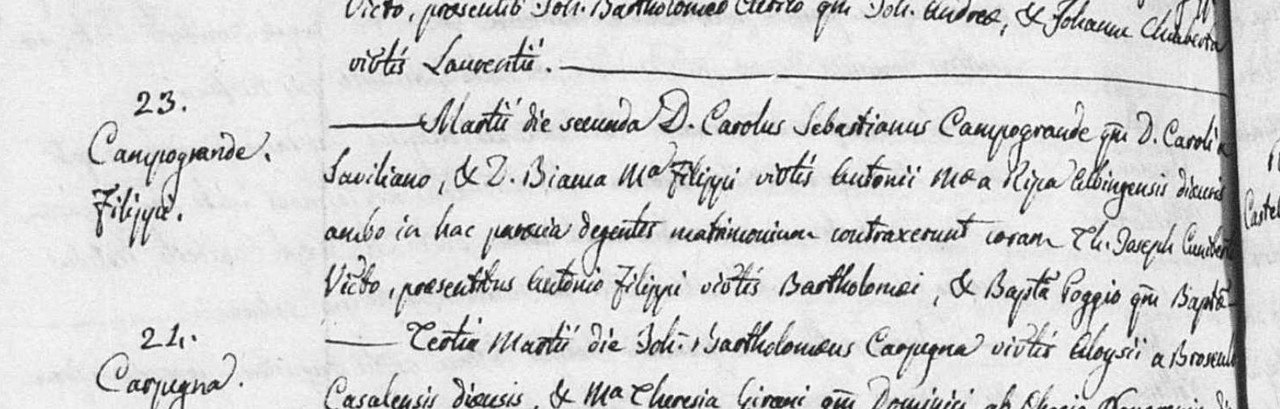 Victo, præsentib Joh. Bartholomæo Clerico qm Joh. Andreæ, & Johanne
vivtis Laurentii.
23.
Campogrande.
Filippi.
Martii die secunda D. Carolus Sebastianus Campogrande qm D. Caroli a
Saviliano, & D. Bianca Ma Filippi vivtis Antonii Mæ a Ripa Albingensis diœcesis
ambo in hac parœcia degentes matrimonium contraxerunt coram Th. Joseph
Victo, præsentibus Antonio Filippi vivtis Bartholomæi, & Bapta Poggio qm Baptæ
24.
Carpegna.
Tertia Martii die Joh: Bartholomæus Carpegna vivtis Aloysii a
Casalensis diœcesis, & Ma Theresia Girani qm Dominici ab
Castel